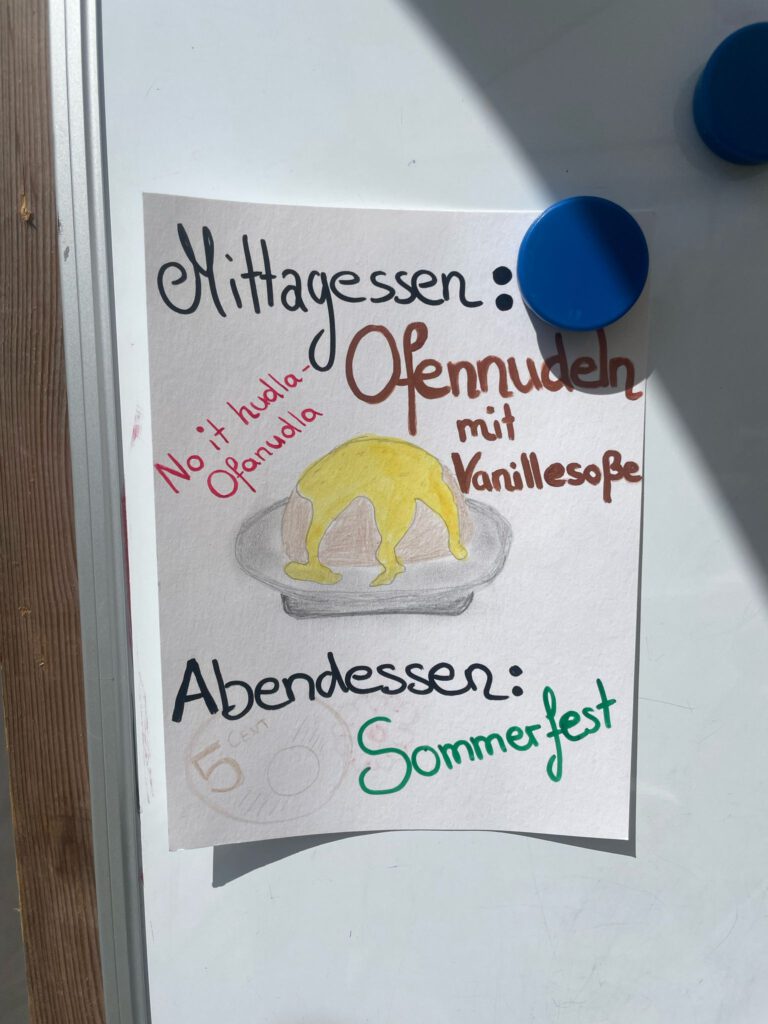 Mittagessen:
Ofennudeln
mit
Vanillesoße
No it hudla-
Ofanudla
Abendessen:
Sommerfest
5 CENT